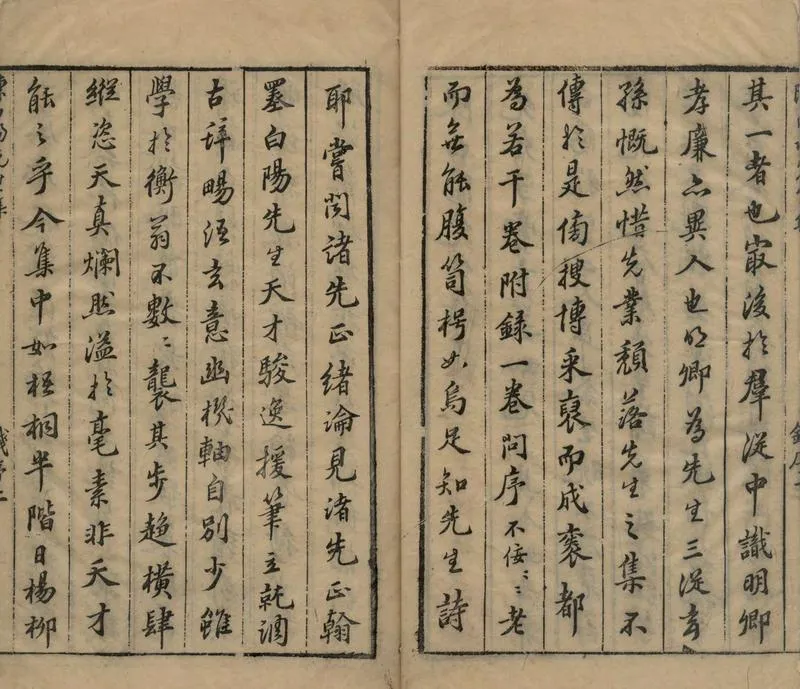 其一者也最後於羣從中識明卿
孝廉亦異人也明卿為先生三從玄
孫慨然惜先業頹落先生之集不
傳於是偹搜博采裒而成袠都
為若干卷附錄一卷問序不佞不佞老
而無能腹笥枵如烏足知先生詩
耶嘗閱諸先正緒論見諸先正翰
墨白陽先生天才駿逸援筆立就酒
古辞暢語玄意幽機軸自別少雖
學於衡翁不數數襲其步趨橫肆
縱恣天真爛然溢於毫素非天才
能之乎今集中如梧桐半階日楊柳